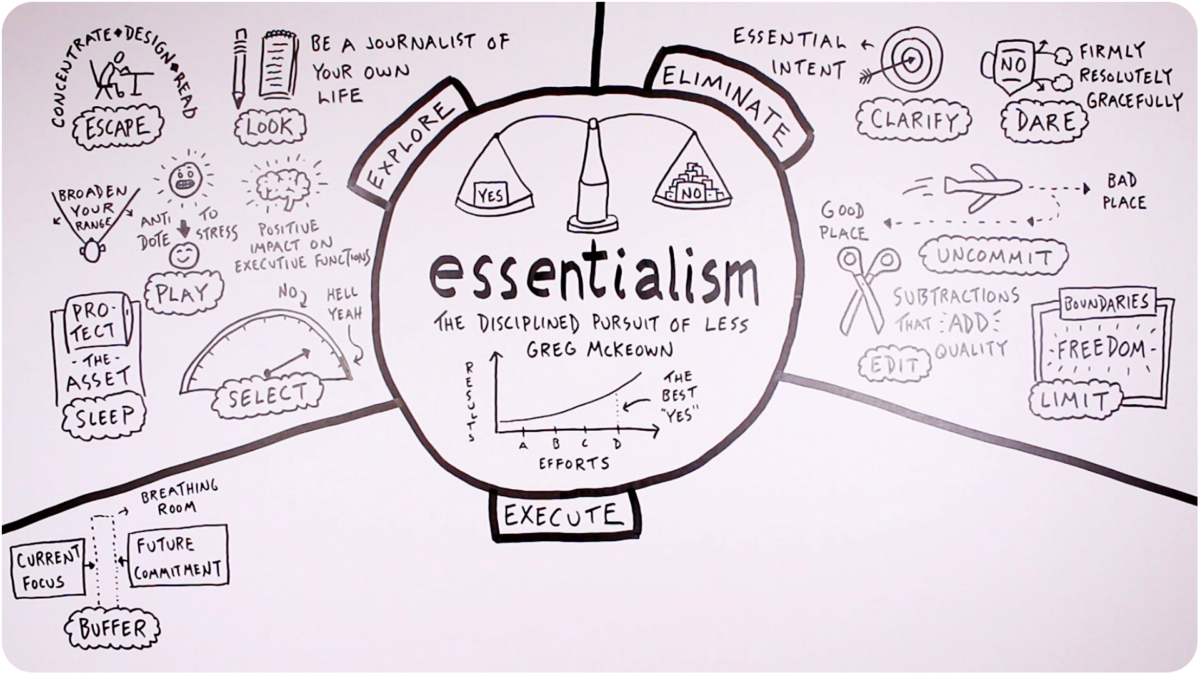 CONCENTRATE • DESIGN • READ
ESCAPE
BE A JOURNALIST OF
YOUR OWN
LIFE
LOOK
BROADEN
YOUR
RANGE
ANTI
DOTE
TO
STRESS
PLAY
POSITIVE
IMPACT ON
EXECUTIVE FUNCTIONS
PRO-
TECT
- THE -
ASSET
SLEEP
NO
HELL
YEAH
SELECT
EXPLORE
ELIMINATE
YES
NO
essentialism
THE DISCIPLINED PURSUIT OF LESS
GREG MCKEOWN
RESULTS
THE
BEST
"YES"
A B C D
EFFORTS
EXECUTE
ESSENTIAL
INTENT
CLARIFY
NO
FIRMLY
RESOLUTELY
GRACEFULLY
DARE
BAD
PLACE
GOOD
PLACE
UNCOMMIT
SUBTRACTIONS
THAT ADD
QUALITY
EDIT
BOUNDARIES
- FREEDOM -
LIMIT
BREATHING
ROOM
CURRENT
FOCUS
FUTURE
COMMITMENT
BUFFER